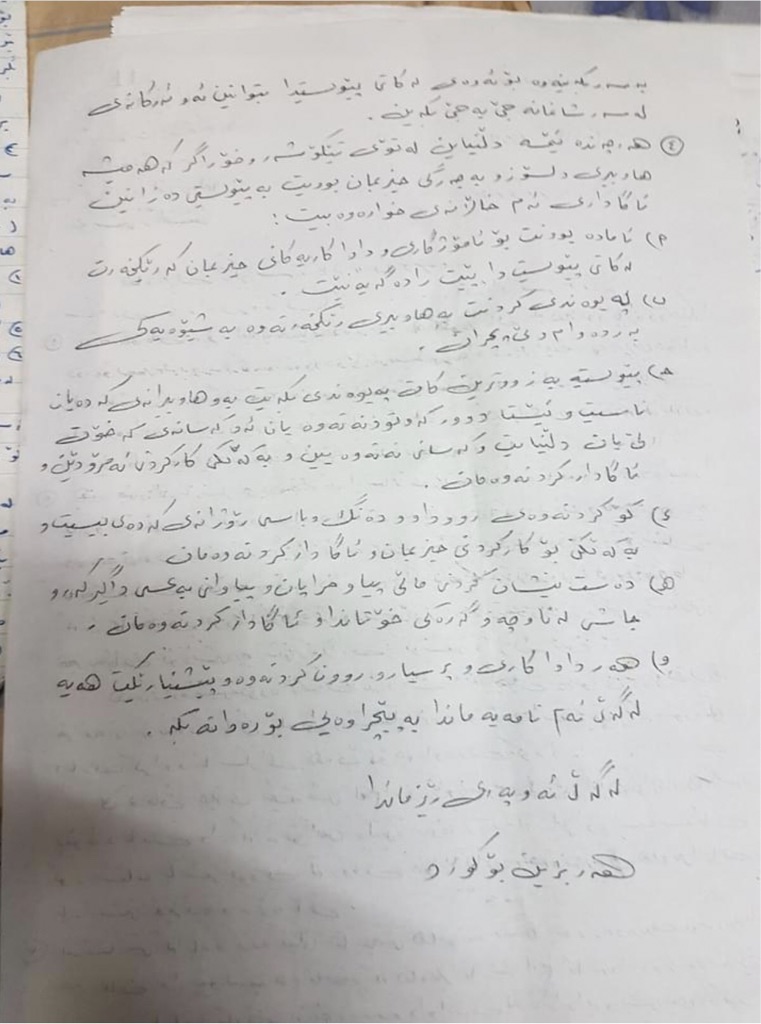 بەسەر بکەینەوە بۆ ئەوەی لەکاتی پێویستیدا بتوانین ئەو ئەرکانەی
لەسەر شانمانە جێ بە جێ بکەین.
٤) هەرچەندە ئێمە دڵنیاین لەتۆی تێکۆشەر و خۆڕاگر کە هەمیشە
هاوبیری دلسۆز و بەجەرگی حیزبمان بوویت بە پێویستی دەزانین
ئاگاداری ئەم خاڵانەی خوارەوە بیت:
ا) ئامادە بوونت بۆ ئامۆژگاری و داواکاریەکانی حیزبمان کە ڕێکخەرت
لەکاتی پێویستدا پێت ڕادەگەیەنێت.
ب) پەیوەندی کردنت بە هاوبیری ڕێکخەرتەوە بە شێوەیەکی
بەردەوام و بێ پچران.
ج) پێویستە بە زووترین کات پەیوەندی بکەیت بەو هاوبیرانەی کە دەیان
ناسیت و ئێستا دوور کەوتوونەتەوە یان ئەو کەسانەی کە خۆت
لێیان دڵنیایت و کەسانی نەتەوەیین و بەکەڵکی کارکردنی ئەمڕۆ دێن و
ئاگادار کردنەوەمان.
د) کۆکردنەوەی ڕووداو و دەنگ و باسی ڕۆژانەی کە دەی بیسیت و
بەکەڵکێ بۆ کارکردنی حیزبمان و ئاگادار کردنەوەمان
هـ) دەست نیشان کردنی ماڵی پیاو خراپان و پیاوانی بەعسی داگیرکەر و
جاشی لە ناوچە و گەڕەکی خۆتاندا و ئاگادار کردنەوەمان.
و) هەر داواکاری و پرسیار و ڕوونکردنەوە و پێشنیارێکت هەیە
لەگەڵ ئەم نامەیەماندا بە پێچراوەیی بۆ ڕەوانە بکە.
لەگەڵ ئەوپەڕی ڕێزماندا
هەر بژیت بۆ کورد